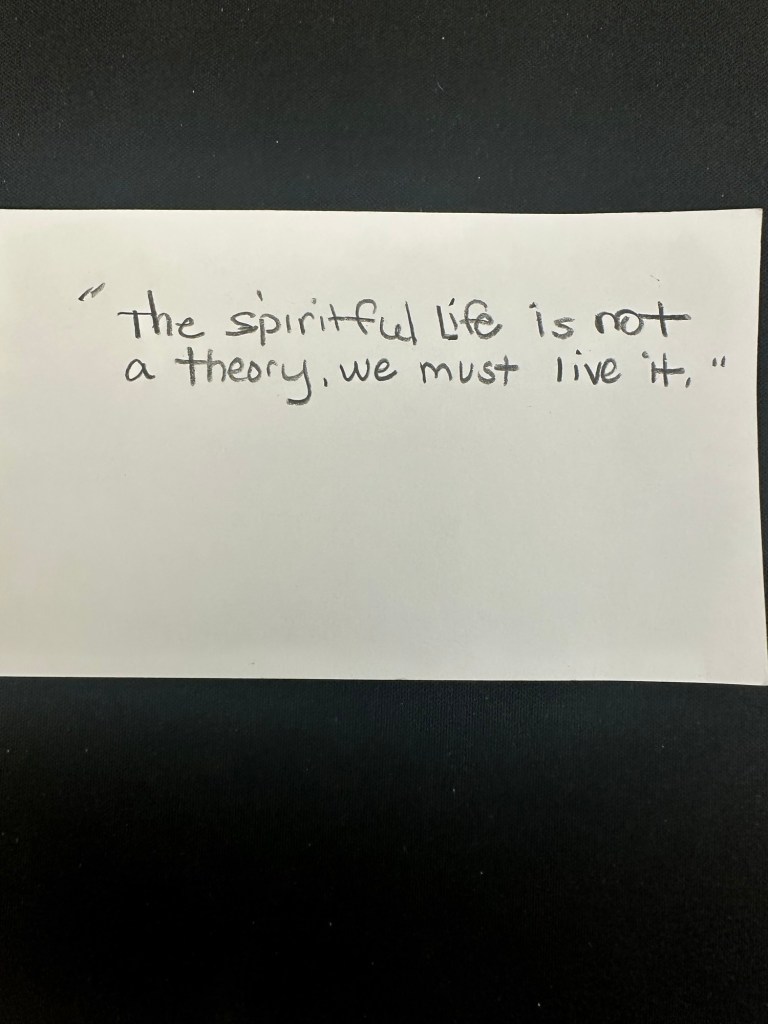 "The spiritful Life is not
a theory, we must live it."